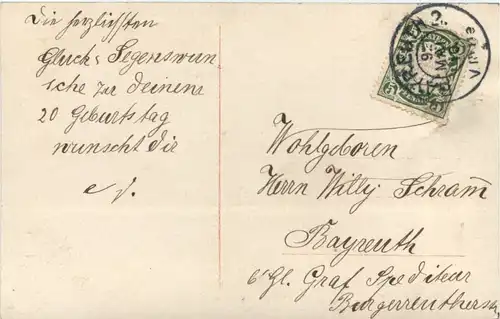 Die herzlichsten
Glück & Segenswun
sche zu deinem
20 Geburtstag
wunscht die
Wohlgeboren
Herrn Willy Schram̅
Bayreuth
b/ Hl. Graf Spediteur
Burgerreutherstr
BAYREUTH 2.
5